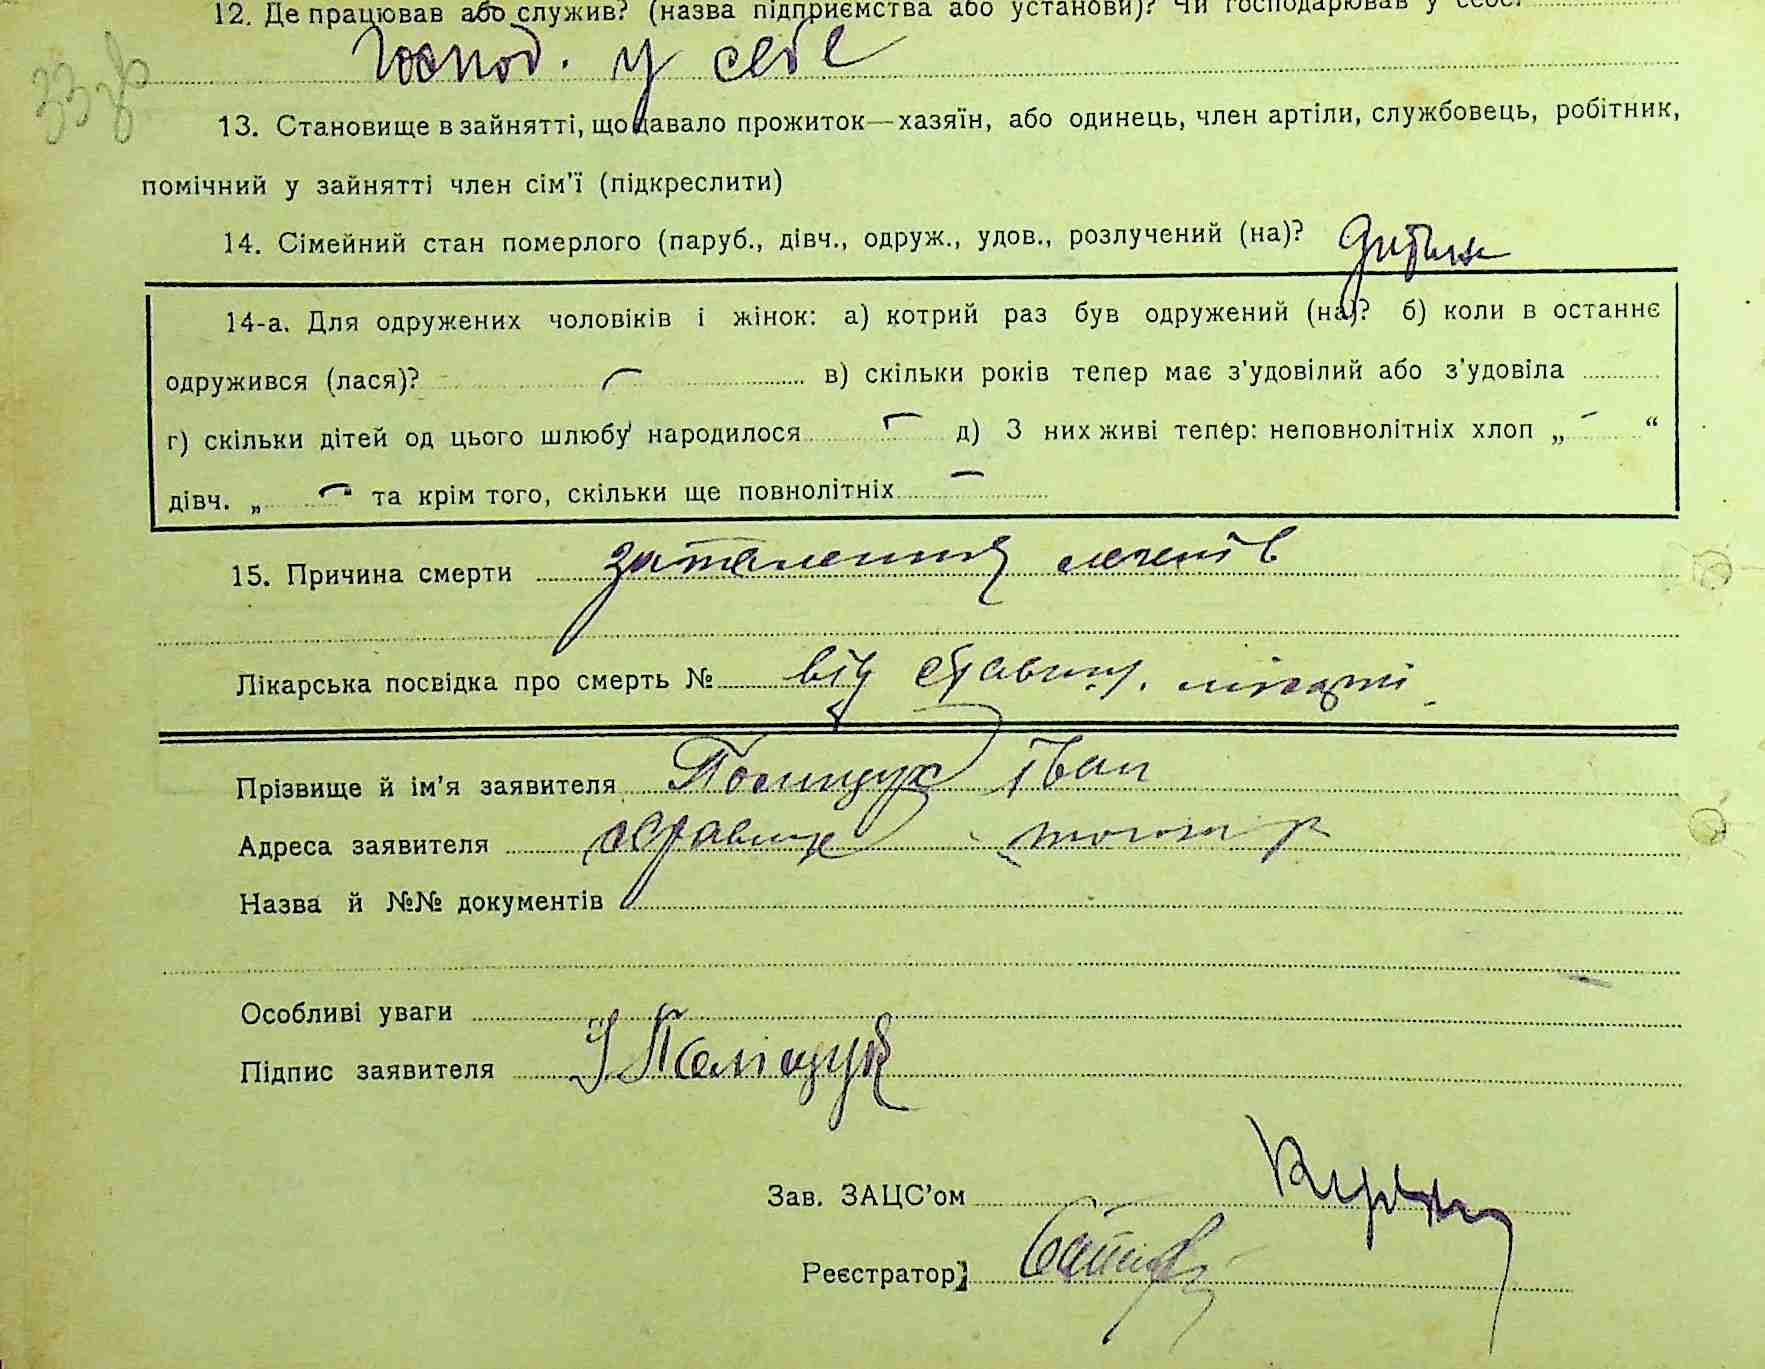 12. Де працював або служив? (назва підприємства або установи)? Чи господарював у себе?
Господ. у себе
13. Становище в зайнятті, що давало прожиток—хазяїн, або одинець, член артіли, службовець, робітник,
помічний у зайнятті член сім'ї (підкреслити)
14. Сімейний стан померлого (паруб., дівч., одруж., удов., розлучений (на)? дитина
14-а. Для одружених чоловіків і жінок: а) котрий раз був одружений (на)? б) коли в останнє
одружився (лася)? — в) скільки років тепер має з'удовілий або з'удовіла
г) скільки дітей од цього шлюбу народилося — д) З них живі тепер: неповнолітніх хлоп „ — “
дівч. „ — “ та крім того, скільки ще повнолітніх —
15. Причина смерти запалення легенів
Лікарська посвідка про смерть № від Ставищ. лікарні
Прізвище й ім'я заявителя Полищук Іван
Адреса заявителя Ставище
Назва й №№ документів
Особливі уваги
Підпис заявителя І Поліщук
Зав. ЗАЦС'ом
Реєстратор